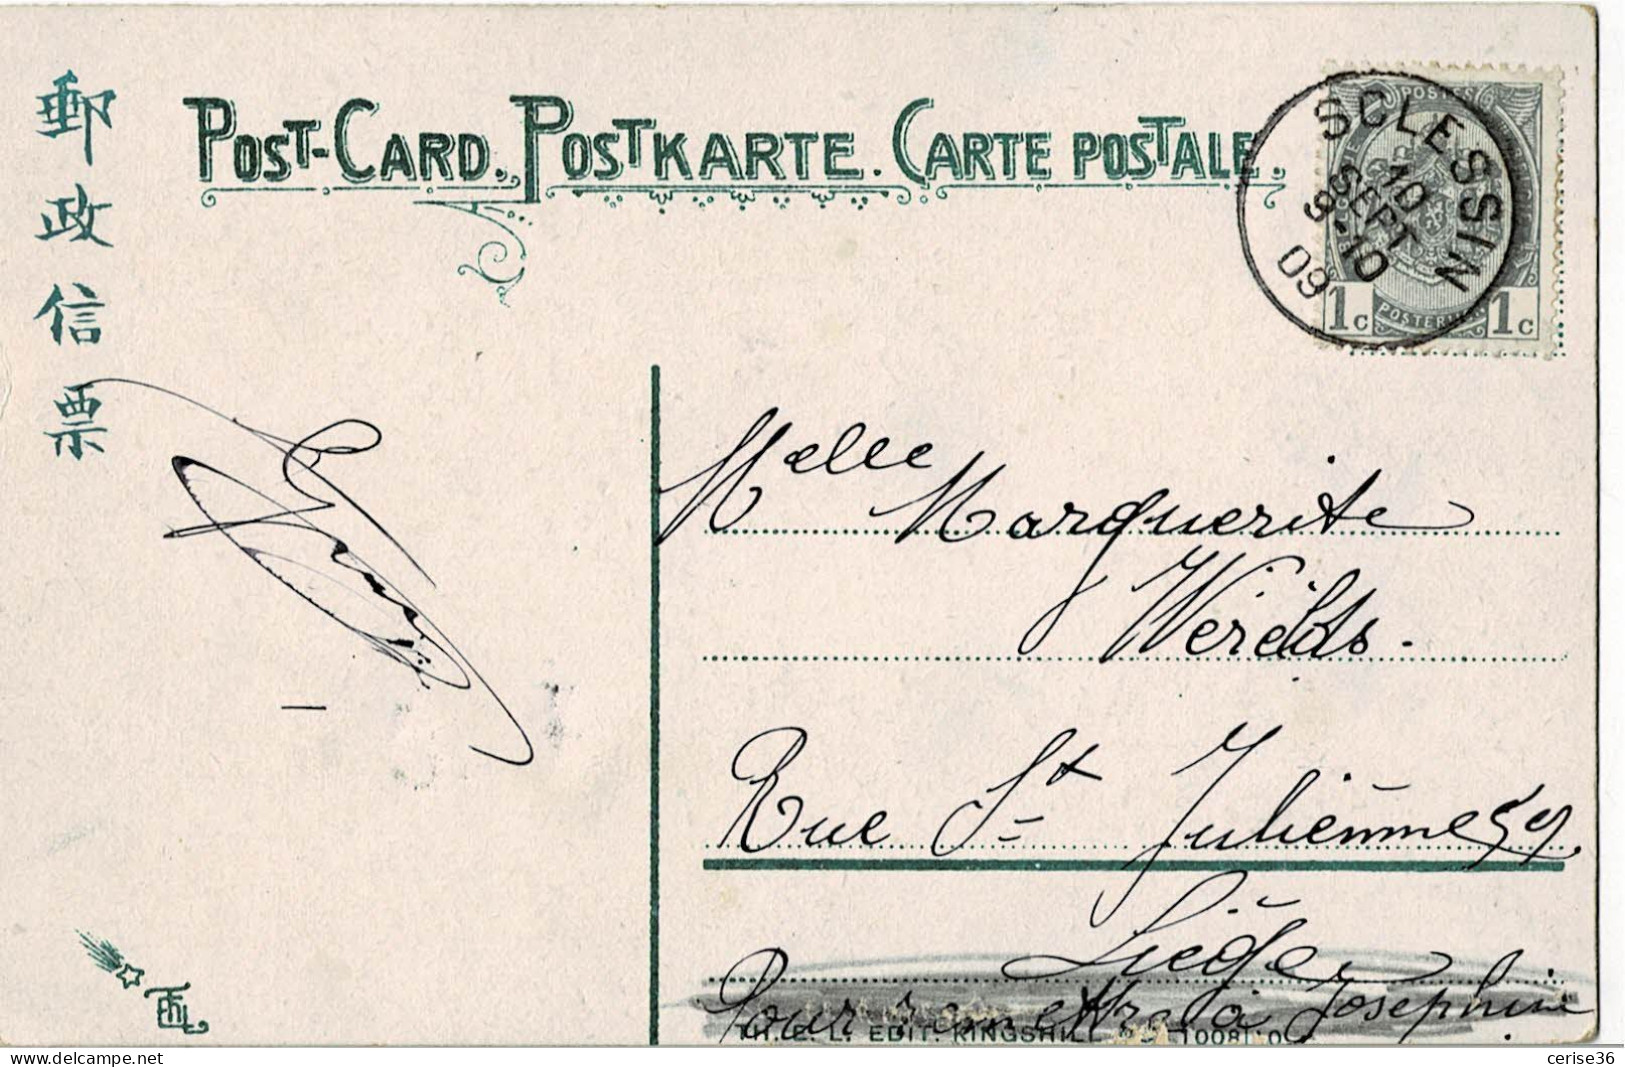 郵政信票
POST-CARD. POSTKARTE. CARTE POSTALE.
SCLESSIN
10
SEPT
9-10
09
POSTES
1c 1c
Melle Marguerite
Rue St Julienne 59
Liége
Pour remettre à Joséphine
TH. E. L. EDIT. KINGSHILL
cerise36
www.delcampe.net